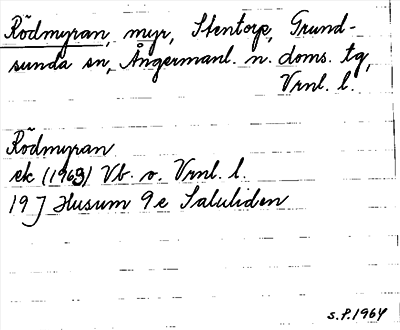 Rödmyran, myr, Stentorp, Grund-
sunda sn, Ångermanl. n. doms. tg,
Vrnl. l.
Rödmyran
ek (1963) Vb. o. Vrnl. l.
19 J Husum 9e Saluliden
s.P.1964